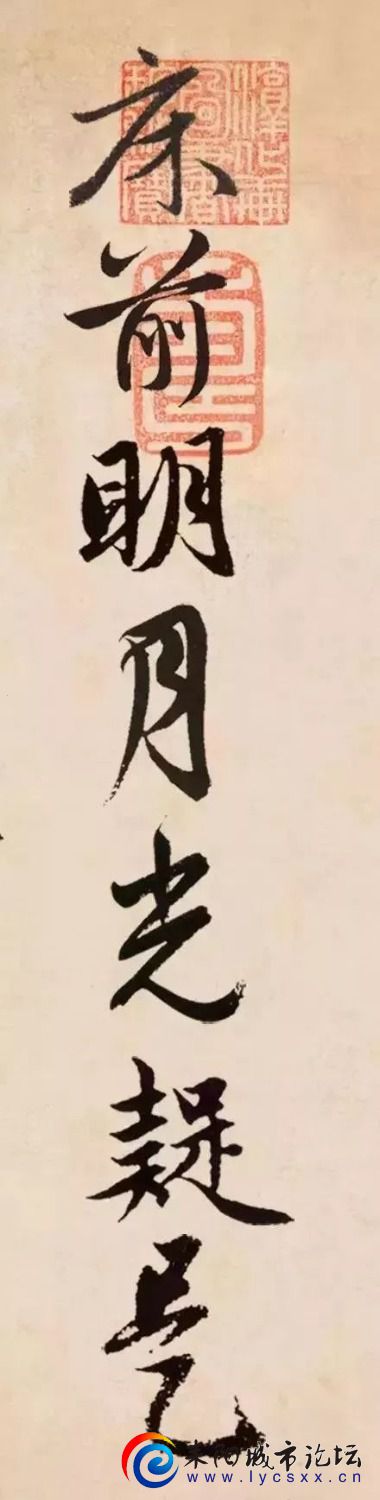 床前明月光疑是
耒阳城市论坛
www.lycsxx.cn